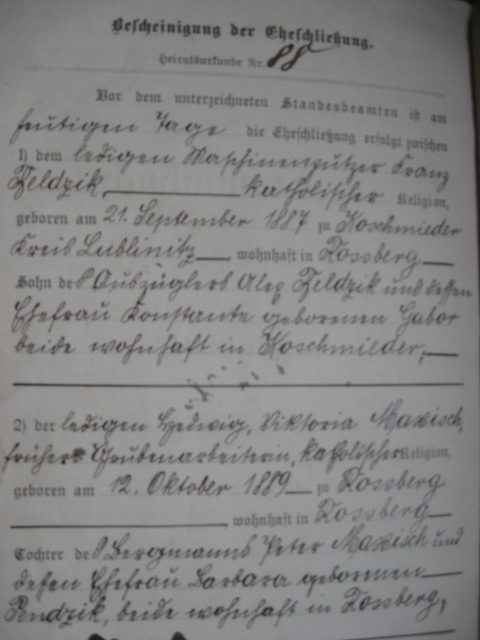 Bescheinigung der Eheschließung.
Heiratsurkunde Nr. 88
Vor dem unterzeichneten Standesbeamten ist am
heutigen Tage die Eheschließung erfolgt zwischen
1) dem ledigen Maschinenputzer Franz
Zeldzik, katholischer Religion,
geboren am 21. September 1887 zu Koschmieder
Kreis Lublinitz, wohnhaft in Rossberg
Sohn des Auszüglers Alex Zeldzik und dessen
Ehefrau Konstante geborenen Gabor
beide wohnhaft in Koschmieder,
2) der ledigen Hedwig, Viktoria Maxisch,
früher Grubenarbeiterin, katholischer Religion,
geboren am 12. Oktober 1889 zu Rossberg
, wohnhaft in Rossberg
Tochter des Bergmanns Peter Maxisch und
dessen Ehefrau Barbara geborenen
Pendzik, beide wohnhaft in Rossberg,